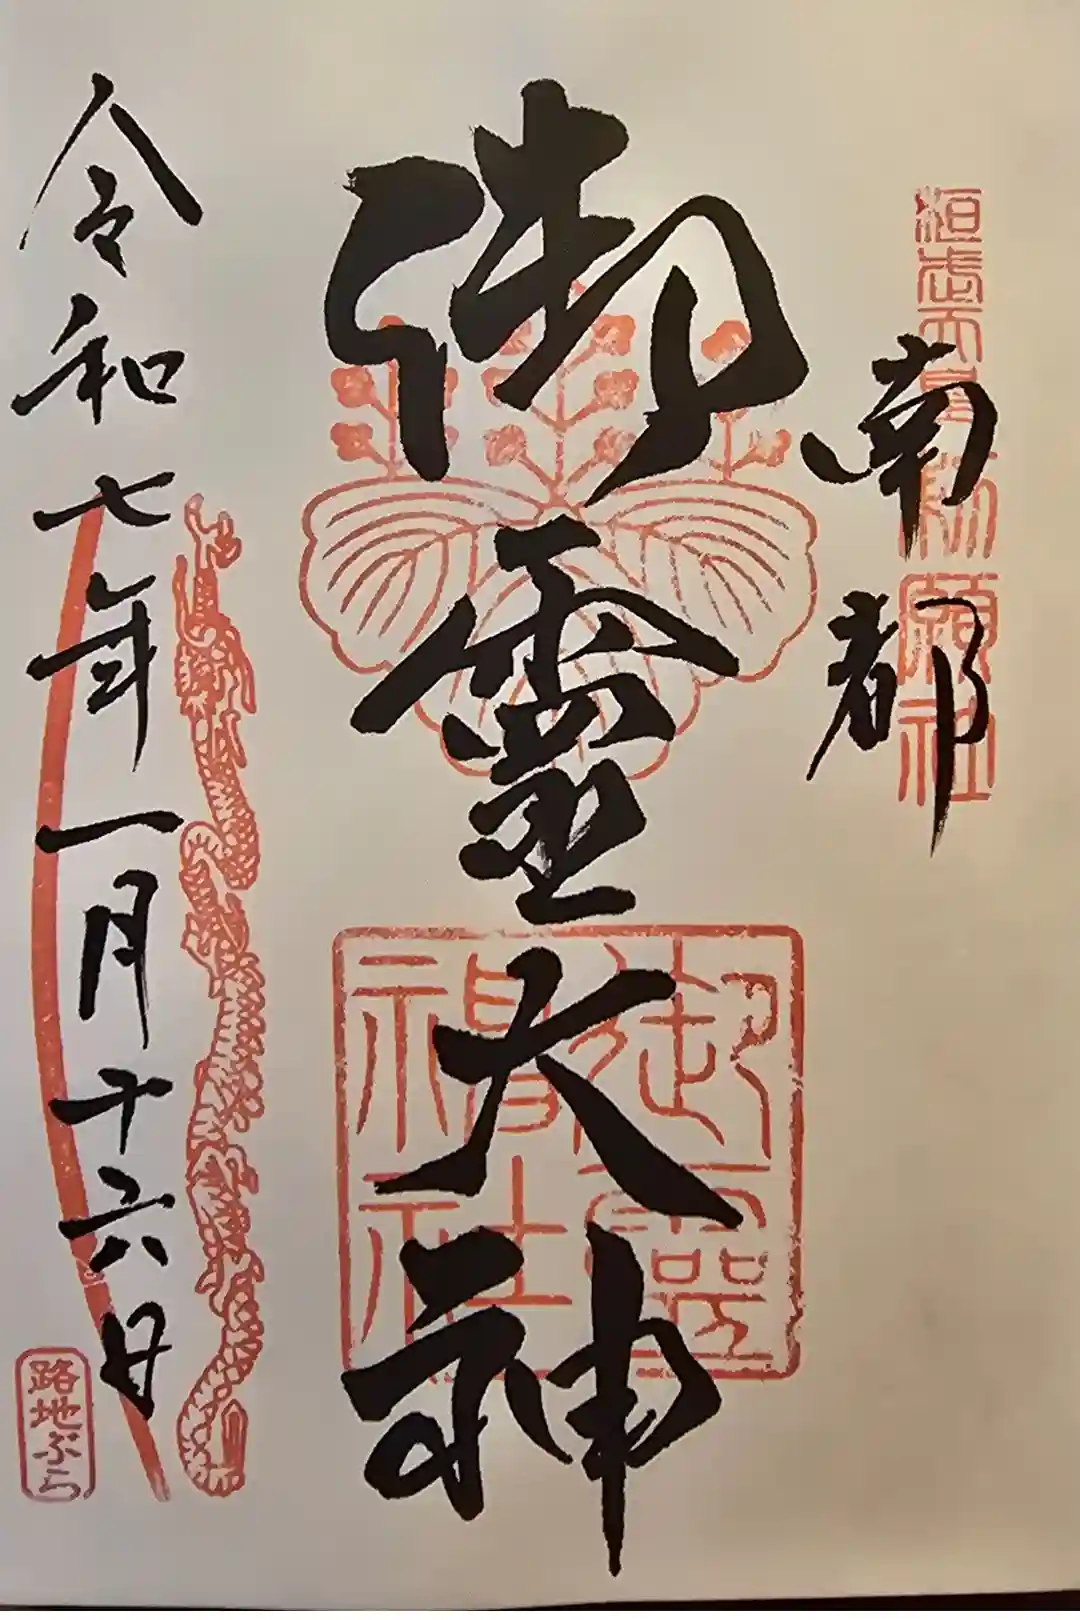 桓武天皇勅願社
南都
御霊大神
御霊神社
令和七年一月十六日
路地ぶら